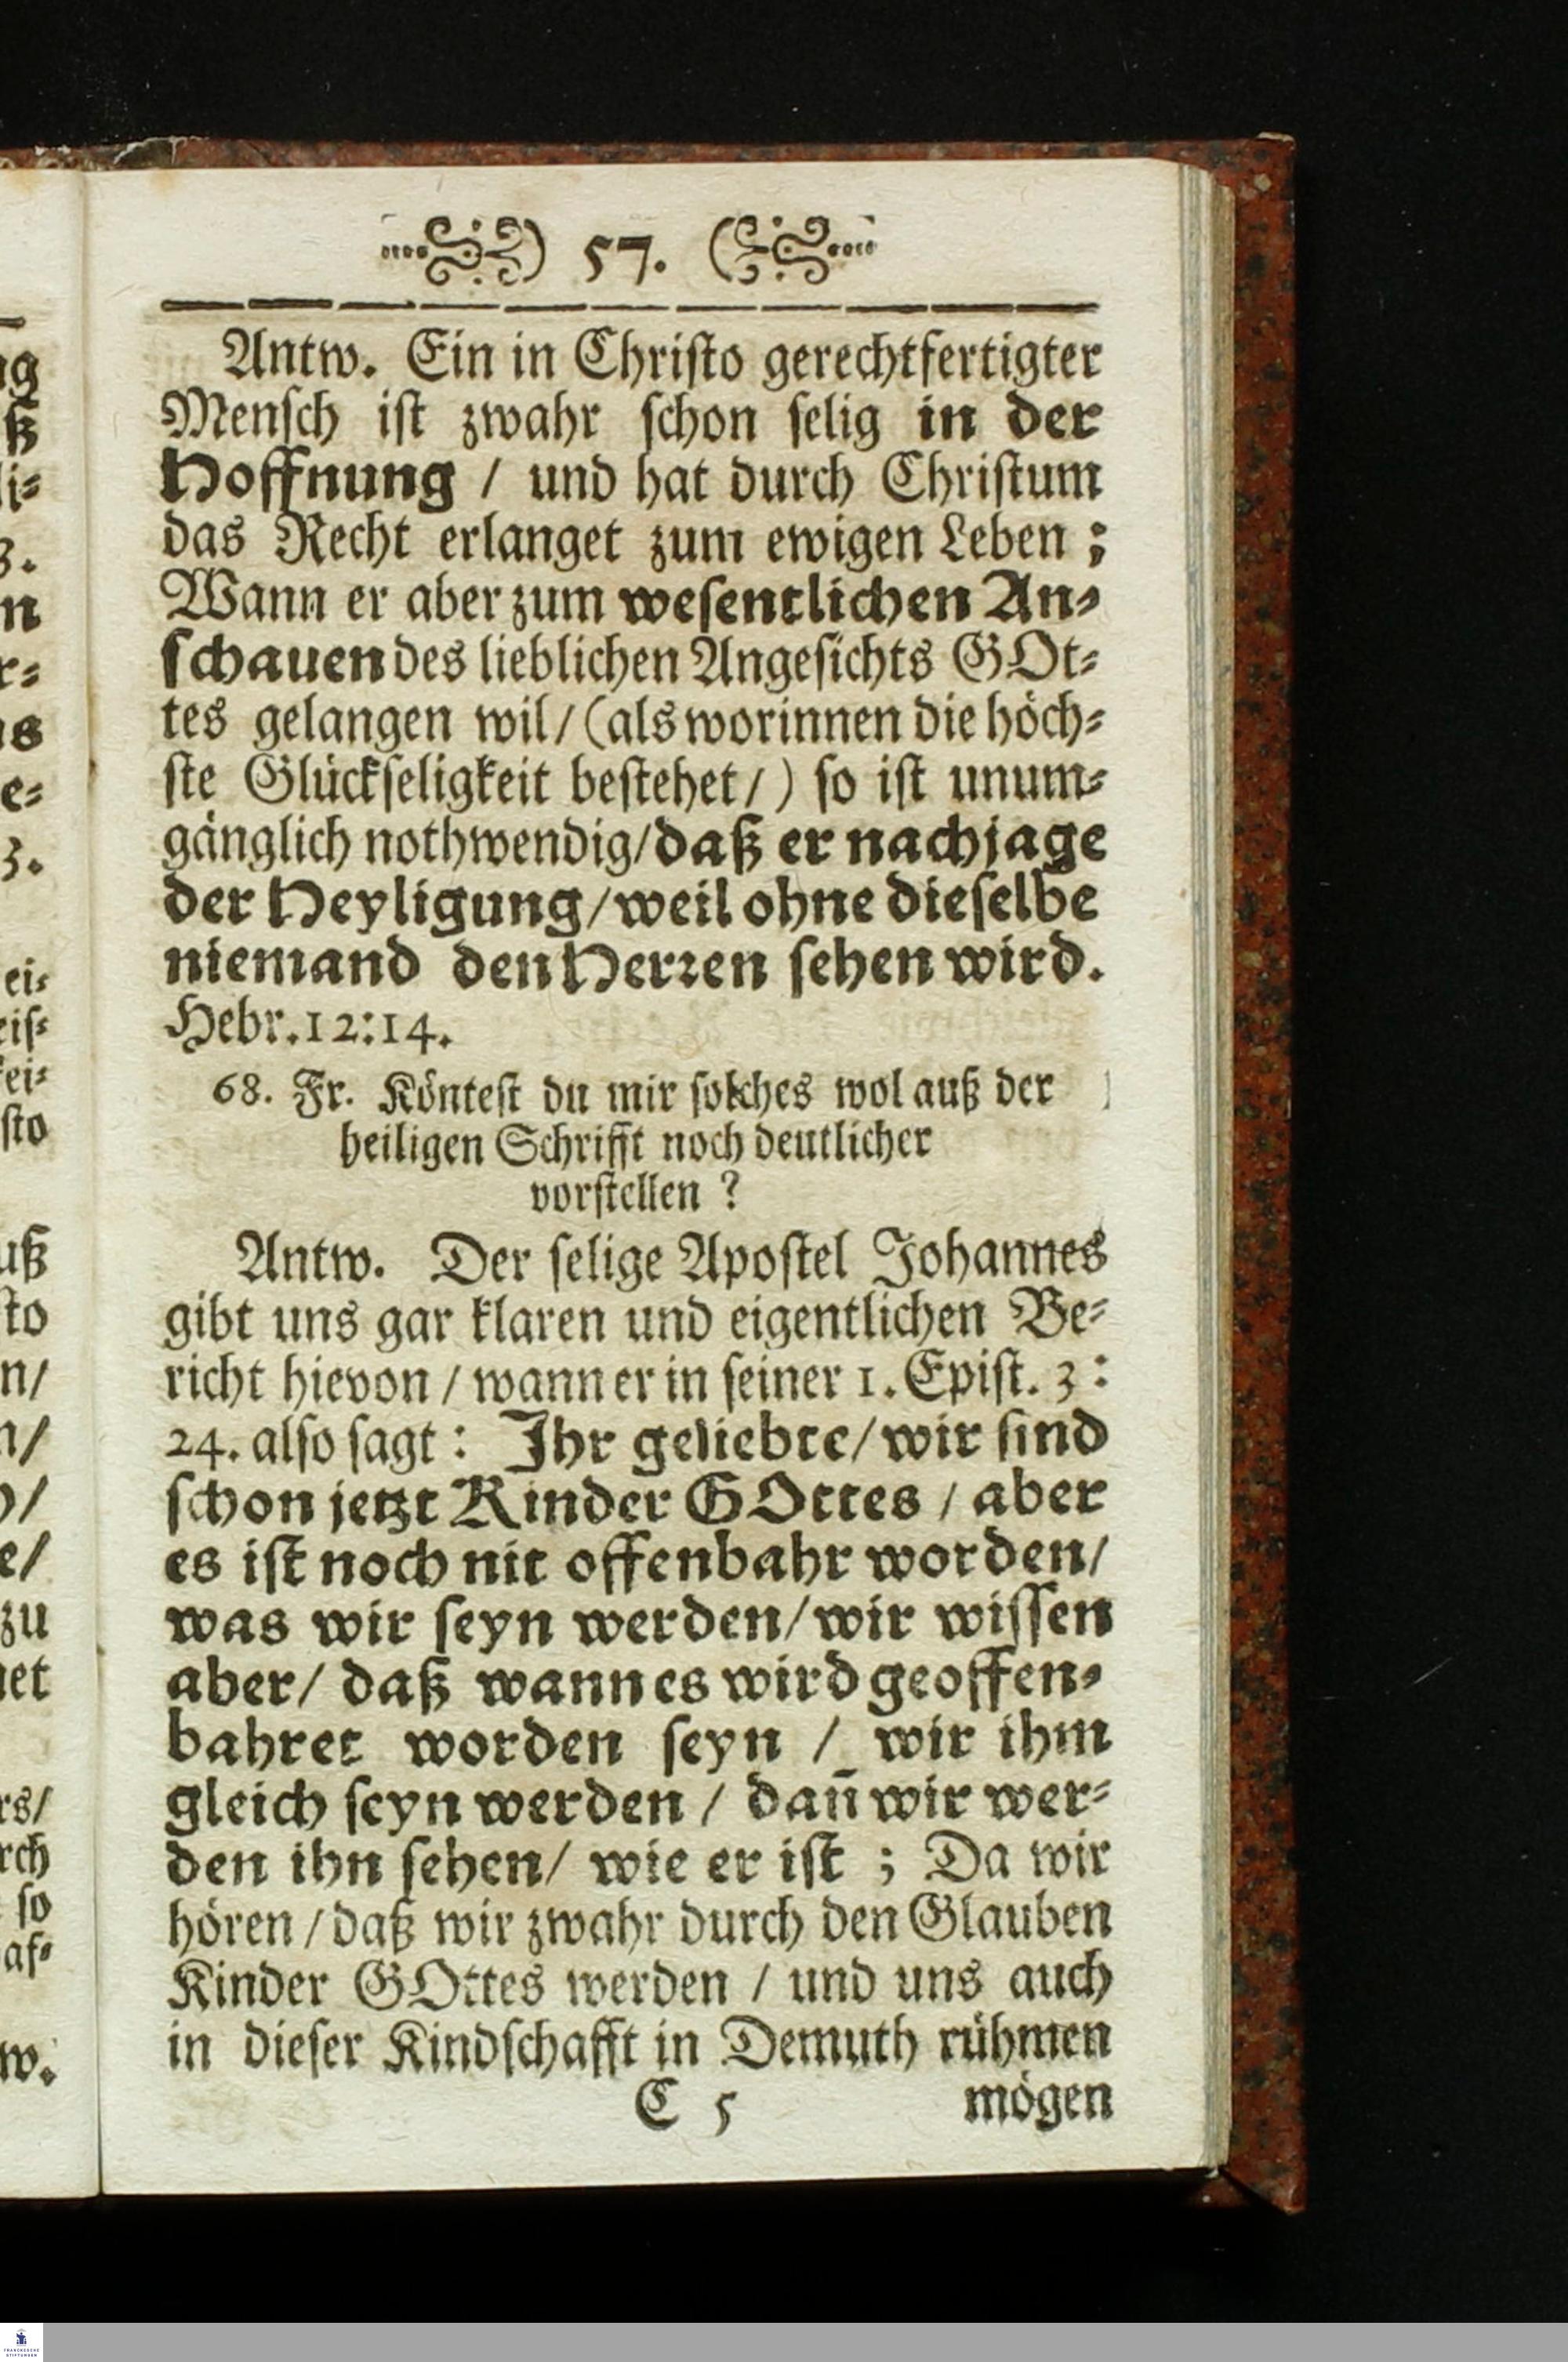 57.
Antw. Ein in Chriſto gerechtfertigter
Menſch iſt zwahr ſchon ſelig in der
Hoffnung / und hat durch Chriſtum
das Recht erlanget zum ewigen Leben ;
Wann er aber zum weſentlichen An⸗
ſchauen des lieblichen Angeſichts GOt⸗
tes gelangen wil / (als worinnen die höch⸗
ſte Glückſeligkeit beſtehet /) ſo iſt unum⸗
gänglich nothwendig / daß er nachjage
der Heyligung / weil ohne dieſelbe
niemand den Herꝛen ſehen wird.
Hebr. 12:14.
68. Fr. Köntest du mir ſolches wol auß der
heiligen Schrifft noch deutlicher
vorſtellen ?
Antw. Der ſelige Apoſtel Johannes
gibt uns gar klaren und eigentlichen Be⸗
richt hievon / wann er in ſeiner 1. Epiſt. 3 :
24. alſo ſagt : Ihr geliebte / wir ſind
ſchon jetzt Kinder GOttes / aber
es iſt noch nit offenbahr worden /
was wir ſeyn werden / wir wiſſen
aber / daß wann es wird geoffen⸗
bahret worden ſeyn / wir ihm
gleich ſeyn werden / dan̄ wir wer⸗
den ihn ſehen / wie er iſt ; Da wir
hören / daß wir zwahr durch den Glauben
Kinder GOttes werden / und uns auch
in dieſer Kindſchafft in Demuth rühmen
C 5 mögen
ng
ß
li⸗
3.
n
r⸗
ns
e⸗
3.
ei⸗
eiſ⸗
kei⸗
ſto
uß
ſto
n/
n/
/
e/
zu
net
rs/
rch
ſo
af⸗
w.
FRANCKESCHE
STIFTUNGEN